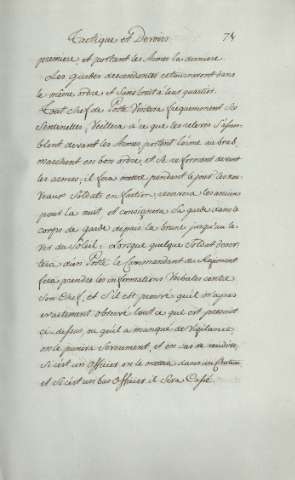 Tactique et Devoirs 74
premiere et portant les Armes la derniere.
Les Gardes descendantes retourneront dans
le même ordre et Sans bruit à leur quartier.
Tout chef de Poste Visitera frequemment Ses
Sentinelles, Veillera à ce que les releves s'assem-
blent devant les Armes portant l'arme au bras,
marchent en bon ordre, et Se reforment devant
les armes; il fera mettre pendant le jour les nou-
veaux Soldats en faction, reservera les anciens
pour la nuit, et consignera Sa garde dans le
corps de garde depuis la brune jusqu'au le-
ver du Soleil. Lorsque quelque Soldat deser-
tera d'un Poste le Commandant du Regiment
fera prendre les informations Verbales contre
Son Chef, et S'il est prouvé qu'il n'ayt pas
exactement observé tout ce qui est prescrit
cy-dessus, ou qu'il a manqué de Vigilance
on le punira Severement, et en cas de recidive
Si c'est un Officier on le mettra dans un
et Si c'est un bas Officier il Sera Cassé.